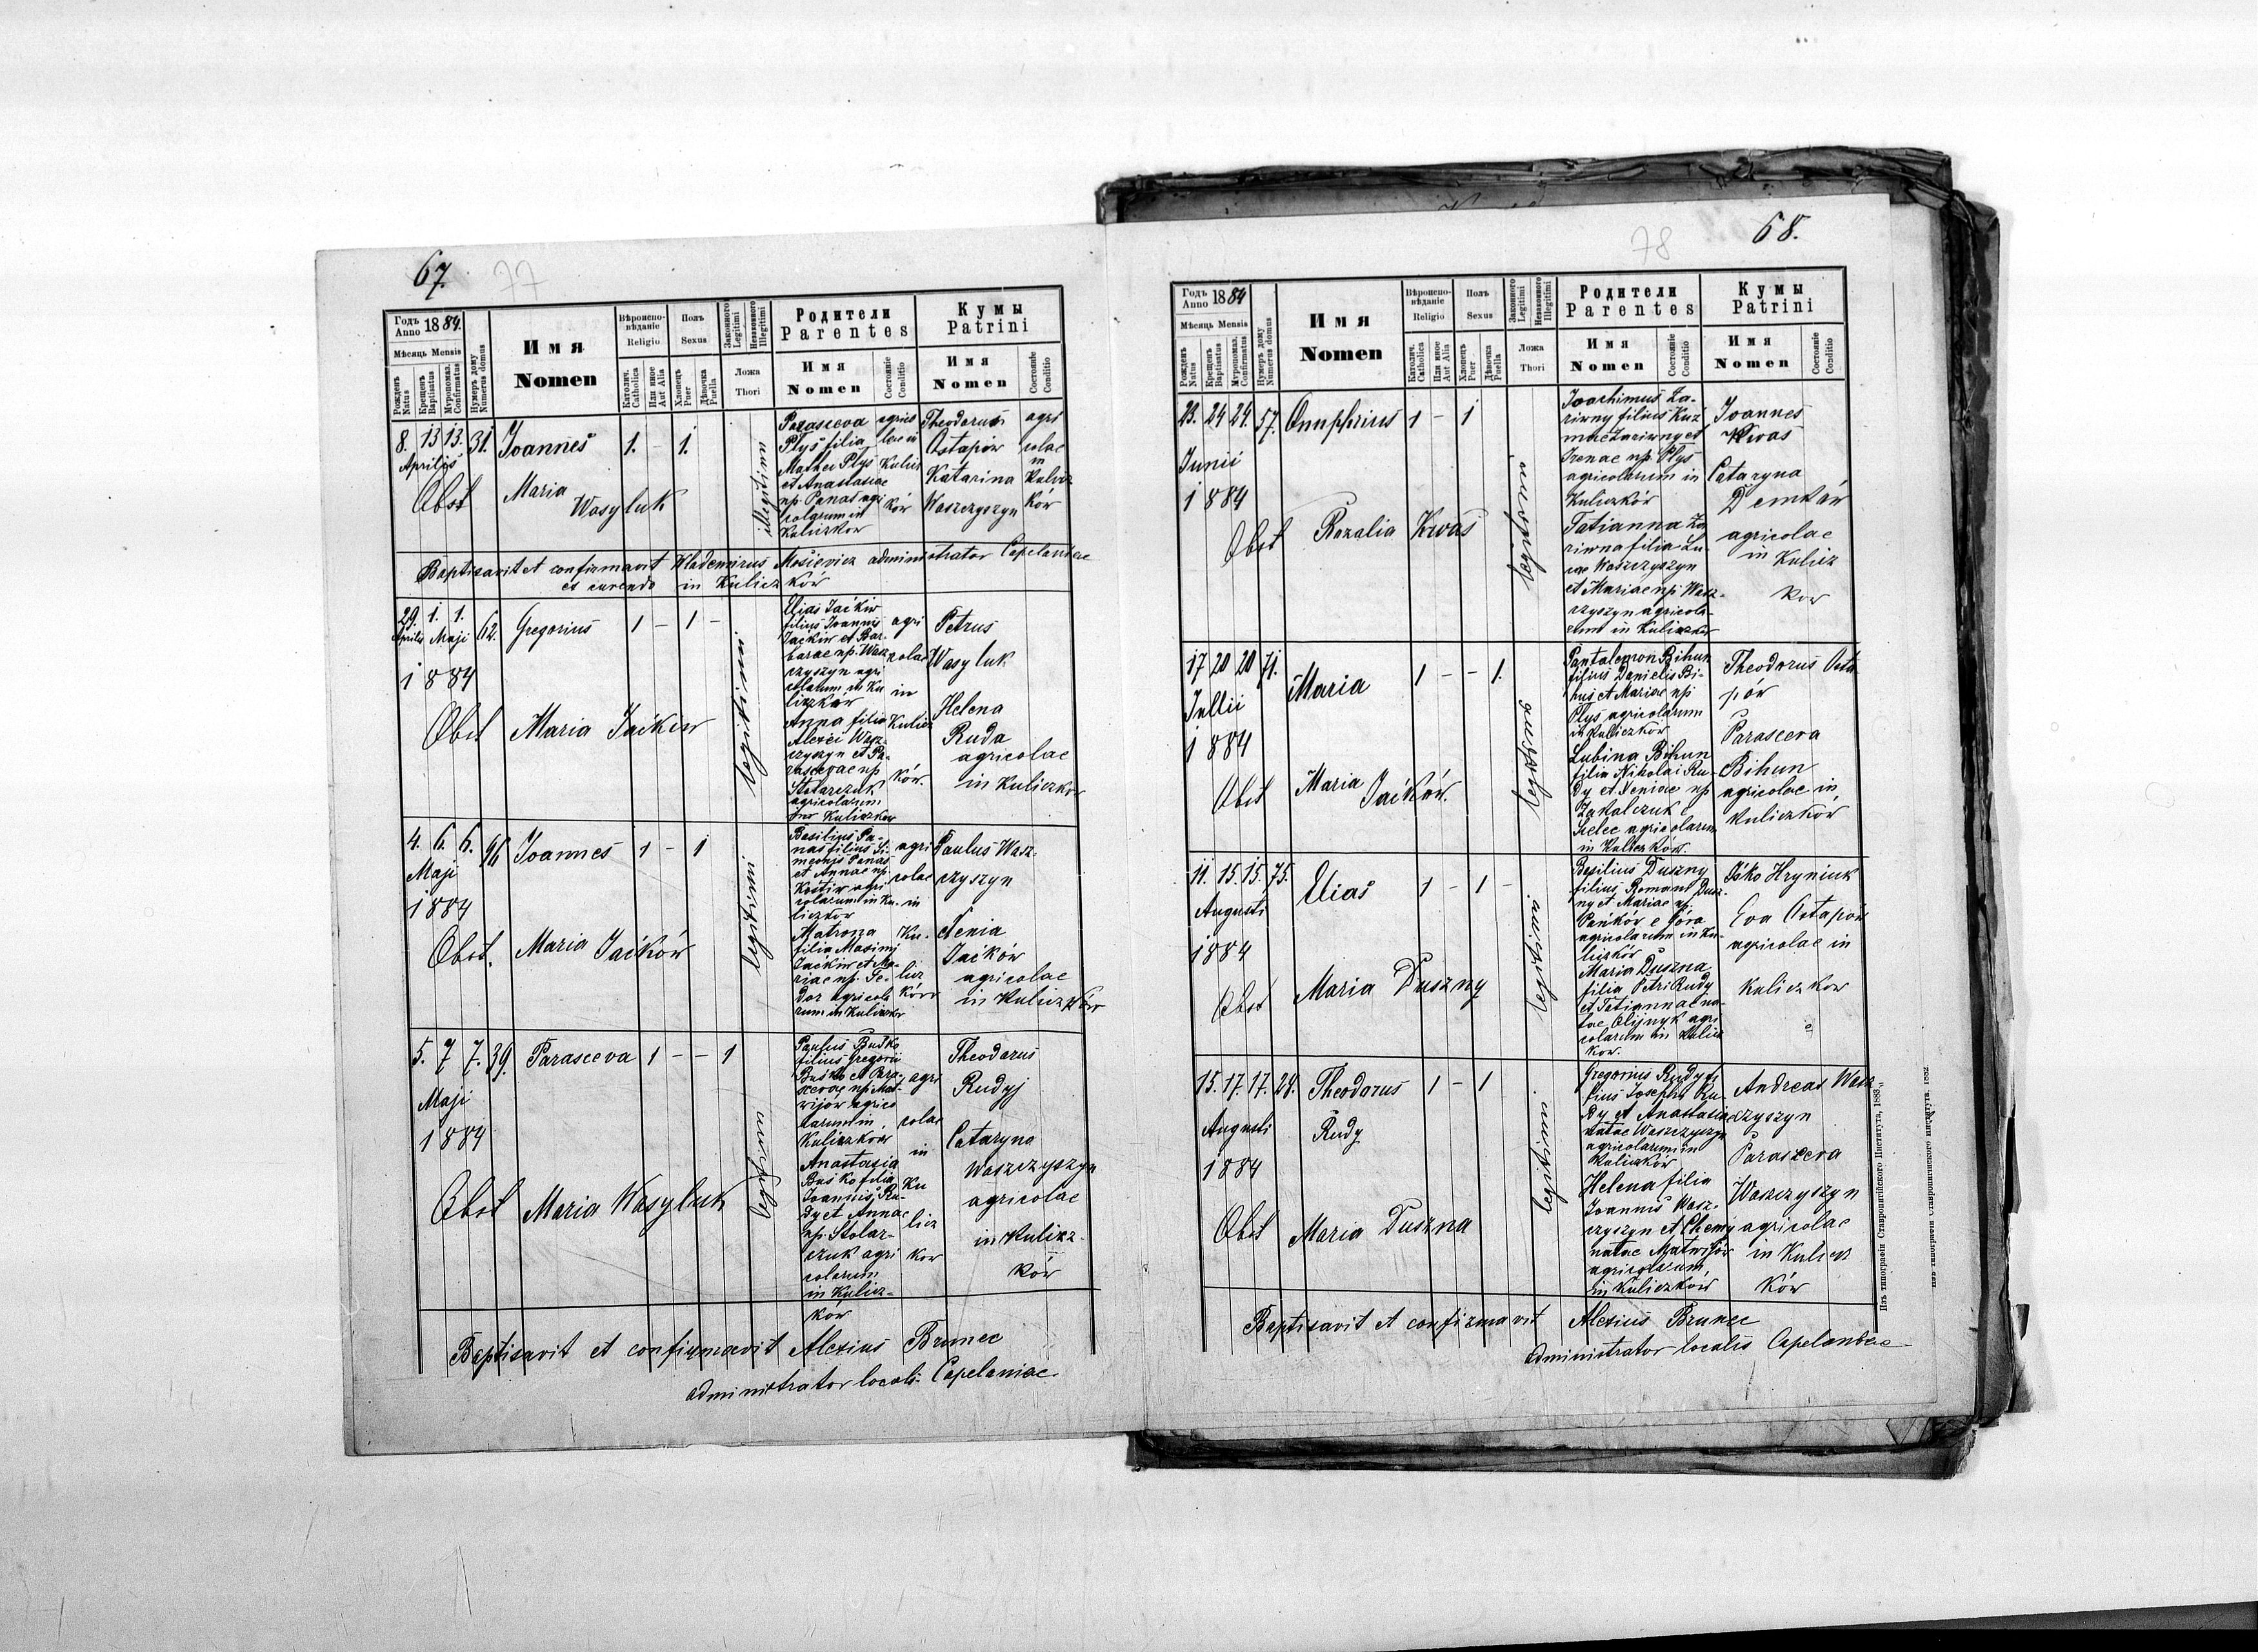 67.
77
Годъ Anno 1884.
Мѣсяцъ Mensis
Рожденъ Natus
Крещенъ Baptisatus
Мѵропомаз. Confirmatus
Нумеръ дому Numerus domus
Имя
Nomen
Вѣроисповѣданіе Religio
Католич. Catholica
Или иное Aut Alia
Полъ Sexus
Хлопецъ Puer
Дѣвочка Puella
Законного Legitimi
Незаконного Illegitimi
Ложа Thori
Родители
Parentes
Имя Nomen
Состояніе Conditio
Кумы
Patrini
Имя Nomen
Состояніе Conditio
8. 13 13. 31. Joannes 1. - 1.
Aprilis
Obst Maria Wasyluk
illegitimi
Parasceva
Plys filia
Mathei Plys
et Anastasiae
np. Panas agri
colarum in
Kuliczkow
agrico
lae in
Kulicz
ków
Theodorus
Ostapów
Katarina
Waszczyszyn
agri
colae
in
Kulicz
ków
Baptisavit et confirmavit Wlademirus Mosievicz administrator Capelaniae
et curendo in Kulicz ków
29. 1. 1. 62. Gregorius 1 - 1 -
Aprilis Maji
1884
Obst Maria Jaćkiw
legitimi
Elias Jaćkiw
filius Joannis
Jackiw et Bar-
barae np. Wasz
czyszyn agri
colarum in Ku
liczków
Anna filia
Alexei Wasz-
czyszyn et Pa-
rascevae np
Stolarczuk
agricolarum
in Kuliczkow
agri
colae
in
Kulicz
ków.
Petrus
Wasyluk
Helena
Ruda
agricolae
in Kuliczkow
4. 6. 6. 46 Joannes 1 - 1
Maji
1884
Obst. Maria Jaćków
legitimi
Basilius Pa-
nas filius Si-
meonis Panas
et Annae np
Kostiw agri
colarum in Ku-
liczkow
Matrona
filia Maximi
Jackiw et Ma-
riae np. Fe-
dor agricola
rum in Kuliczkow
agri
colae
in
Ku-
licz
ków
Paulus Wasz-
czyszyn
Xenia
Jaćków
agricolae
in Kuliczków
5. 7 7. 39. Parasceva 1 - - 1
Maji
1884
Obst Maria Wasyluk
legitimi
Paulus Busko
filius Gregorii
Busko et Para-
scevae np. Mat-
wijow agrico
larum in
Kuliczkow
Anastasia
Busko filia
Joannis Ru-
dy et Annae
np. Stolar-
czuk agri
colarum
in Kulicz-
ków
agri
colae
in
Ku
licz
kow
Theodorus
Rudyj
Cataryna
Waszczyszyn
agricolae
in Kulicz-
ków
Baptisavit et confirmavit Alexius Brunec
administrator locali Capelaniae
68.
78
Годъ Anno 1884
Мѣсяцъ Mensis
Рожденъ Natus
Крещенъ Baptisatus
Мѵропомаз. Confirmatus
Нумеръ дому Numerus domus
Имя
Nomen
Вѣроисповѣданіе Religio
Католич. Catholica
Или иное Aut Alia
Полъ Sexus
Хлопецъ Puer
Дѣвочка Puella
Законного Legitimi
Незаконного Illegitimi
Ложа Thori
Родители
Parentes
Имя Nomen
Состояніе Conditio
Кумы
Patrini
Имя Nomen
Состояніе Conditio
23. 24 24. 57. Onuphrius 1 - 1
Junii
1884
Obst Rozalia Kwas
legitimi
Joachimus Za-
riwny filius Kuz
mae Zariwny et
Irenae np. Plys
agricolarum in
Kuliczków
Tatianna Za
riwna filia Lu-
cae Waszczyszyn
et Mariae np. Wasz-
czyszyn agricola-
rum in Kuliczkow
Joannes
Kwas
Cataryna
Demków
agricolae
in Kulicz
kow
17 20 20 71. Maria 1 - - 1.
Julii
1884
Obst Maria Jaćków.
legitimi
Pantalemon Bihun
filius Danielis Bi-
hun et Mariae np
Plys agricolarum
in Kuliczkow
Lubina Bihun
filia Nikolai Ru-
dy et Xeniae np
Zakalczuk e
Sielec agricolarum
in Kuliczków.
Theodorus Osta
pów
Parasceva
Bihun
agricolae in
Kuliczków
11. 15. 15. 75. Elias 1 - 1 -
Augusti
1884
Obst Maria Duszny
legitimi
Basilius Duszny
filius Romani Dusz-
ny et Mariae np.
Pańków e Góra
agricolarum in Ku-
liczków
Maria Duszna
filia Petri Rudy
et Tatiannae na-
tae Olijnyk agri
colarum in Kulicz
kow.
Isko Hryniuk
Eva Ostapów
agricolae in
Kuliczkow
15. 17. 17. 24. Theodorus 1 - 1
Augusti Rudy
1884
Obst Maria Duszna
legitimi
Gregorius Rudy fi
lius Josephi Ru-
dy et Anastasiae
natae Waszczyszyn
agricolarum in
Kuliczków
Helena filia
Joannis Wasz-
czyszyn et Chemij
natae Matwijów
agricolarum,
in Kuliczków
Andreas Wasz
czyszyn
Parasceva
Waszczyszyn
agricolae
in Kulicz
ków
Baptisavit et confirmavit Alexius Brunec
administrator localis Capelaniae
Изъ типографіи Ставропигійского Института, 1883.
Изъ типографіи Ставропигійского института. 1882